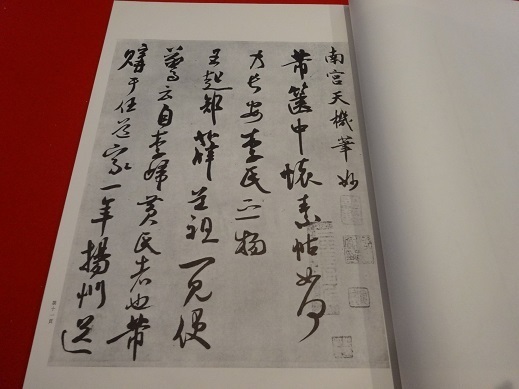 南宮天機筆妙
芾篋中懷素帖如何
乃長安李氏之物
王起部薛道祖一見便
驚云自李歸黃氏者也芾
購于任道家一年揚州送